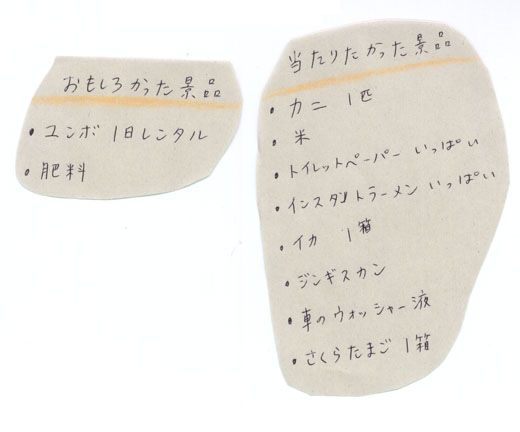 おもしろかった景品
・ユンボ 1日レンタル
・肥料
当たりたかった景品
・カニ 1匹
・米
・トイレットペーパー いっぱい
・インスタントラーメン いっぱい
・イカ 1箱
・ジンギスカン
・車のウォッシャー液
・さくらたまご 1箱